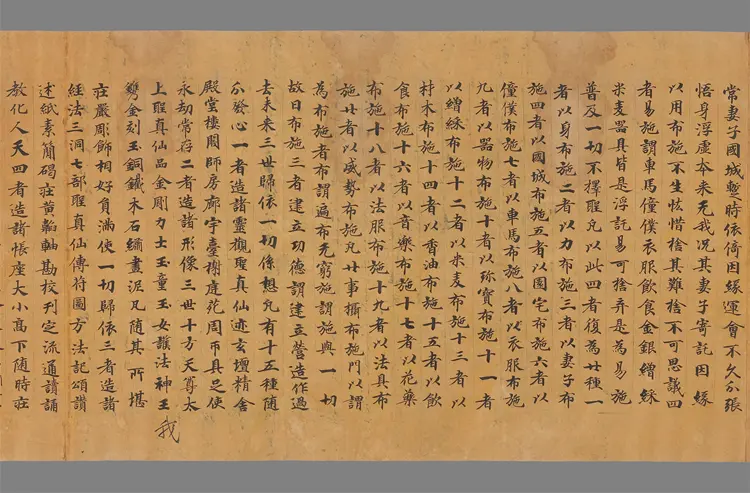 常妻子國城暫時依倚因緣運會不久分張
悟身浮虛本来无我况其妻子寄託因緣
以用布施不生恡惜捨其難捨不可思議四
者易施謂車馬僮僕衣服飲食金銀繒綵
米麦器具皆是浮託易可捨弃是為易施
普及一切不擇聖凡以此四者復為廿種一
者以身布施二者以力布施三者以妻子布
施四者以國城布施五者以園宅布施六者以
僮僕布施七者以車馬布施八者以衣服布施
九者以器物布施十者以珎寶布施十一者
以繒綵布施十二者以米麦布施十三者以
材木布施十四者以香油布施十五者以飲
食布施十六者以音樂布施十七者以花藥
布施十八者以法服布施十九者以法具布
施廿者以威勢布施凡廿事攝布施門以謂
為布施者布謂遍布无窮施謂施與一切
故曰布施三者建立功德謂建立營造作過
去未来三世歸依一切係想凡有十五種随
分發心一者造諸靈觀聖真仙迹玄壇精舍
殿堂樓閣師房廊宇臺榭庭苑周帀具足使
永劫常存二者造諸形像三世十方天尊太
上聖真仙品金剛力士玉童玉女護法神王
我
彫金刻玉銅鐵木石繡畫泥凡随其所堪
莊嚴彫飾相好負滿使一切歸依三者造諸
経法三洞七部聖真仙傳符圖方法記頌讃
述紙素簡碼莊黄軸勘校刊定流通讀誦
教化人天四者造諸帳座大小髙下随時莊